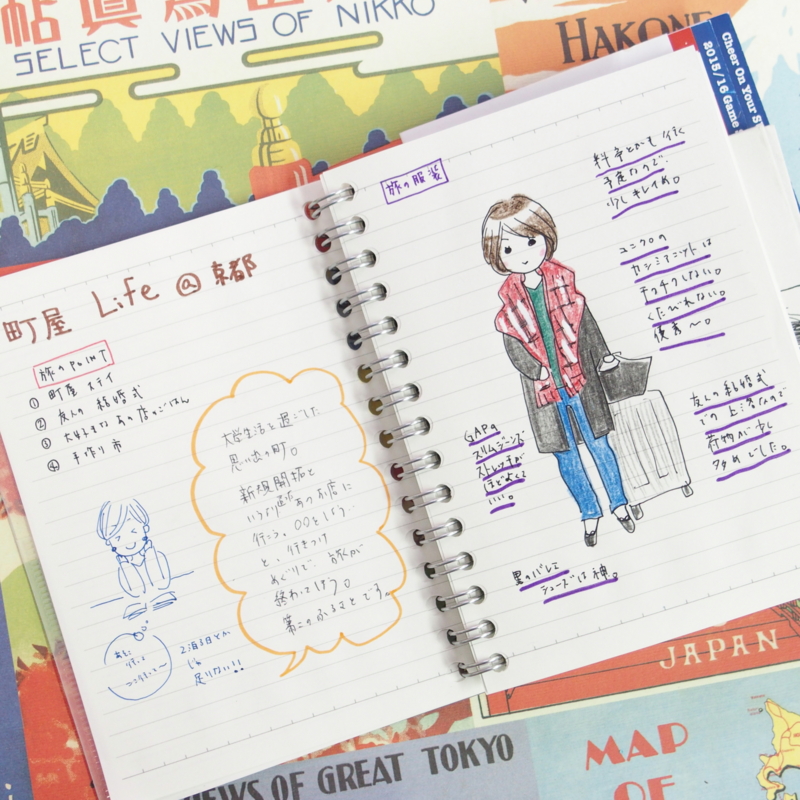 帖真寫
SELECT VIEWS OF NIKKO
HAKONE
Cheer On Your
2015/16 Game
町屋 Life @ 京都
旅のPOINT
① 町屋 ステイ
② 友人の 結婚式
③ 大好きな あの店のごはん
④ 手作り市
大学生活を過ごした
思い出の町。
新規開拓と
あのお店に
行こう。〇〇としよう
と、行きつけ
めぐりで、旅が
終わってしまう。
第二のふるさとです。
2泊3日とか
じゃ
足りない!!
旅の服装
料亭とかも行く
予定なので、
少しキレイめ。
ユニクロの
カシミアニットは
チクチクしない。
くたびれない。
優秀〜。
GAPの
スリムジーンズ
ストレッチが
ほどよくて
いい。
友人の結婚式
での上洛なので
荷物が少し
多めでした。
黒のバレエ
シューズは神。
JAPAN
VIEWS OF GREAT TOKYO
MAP
OF